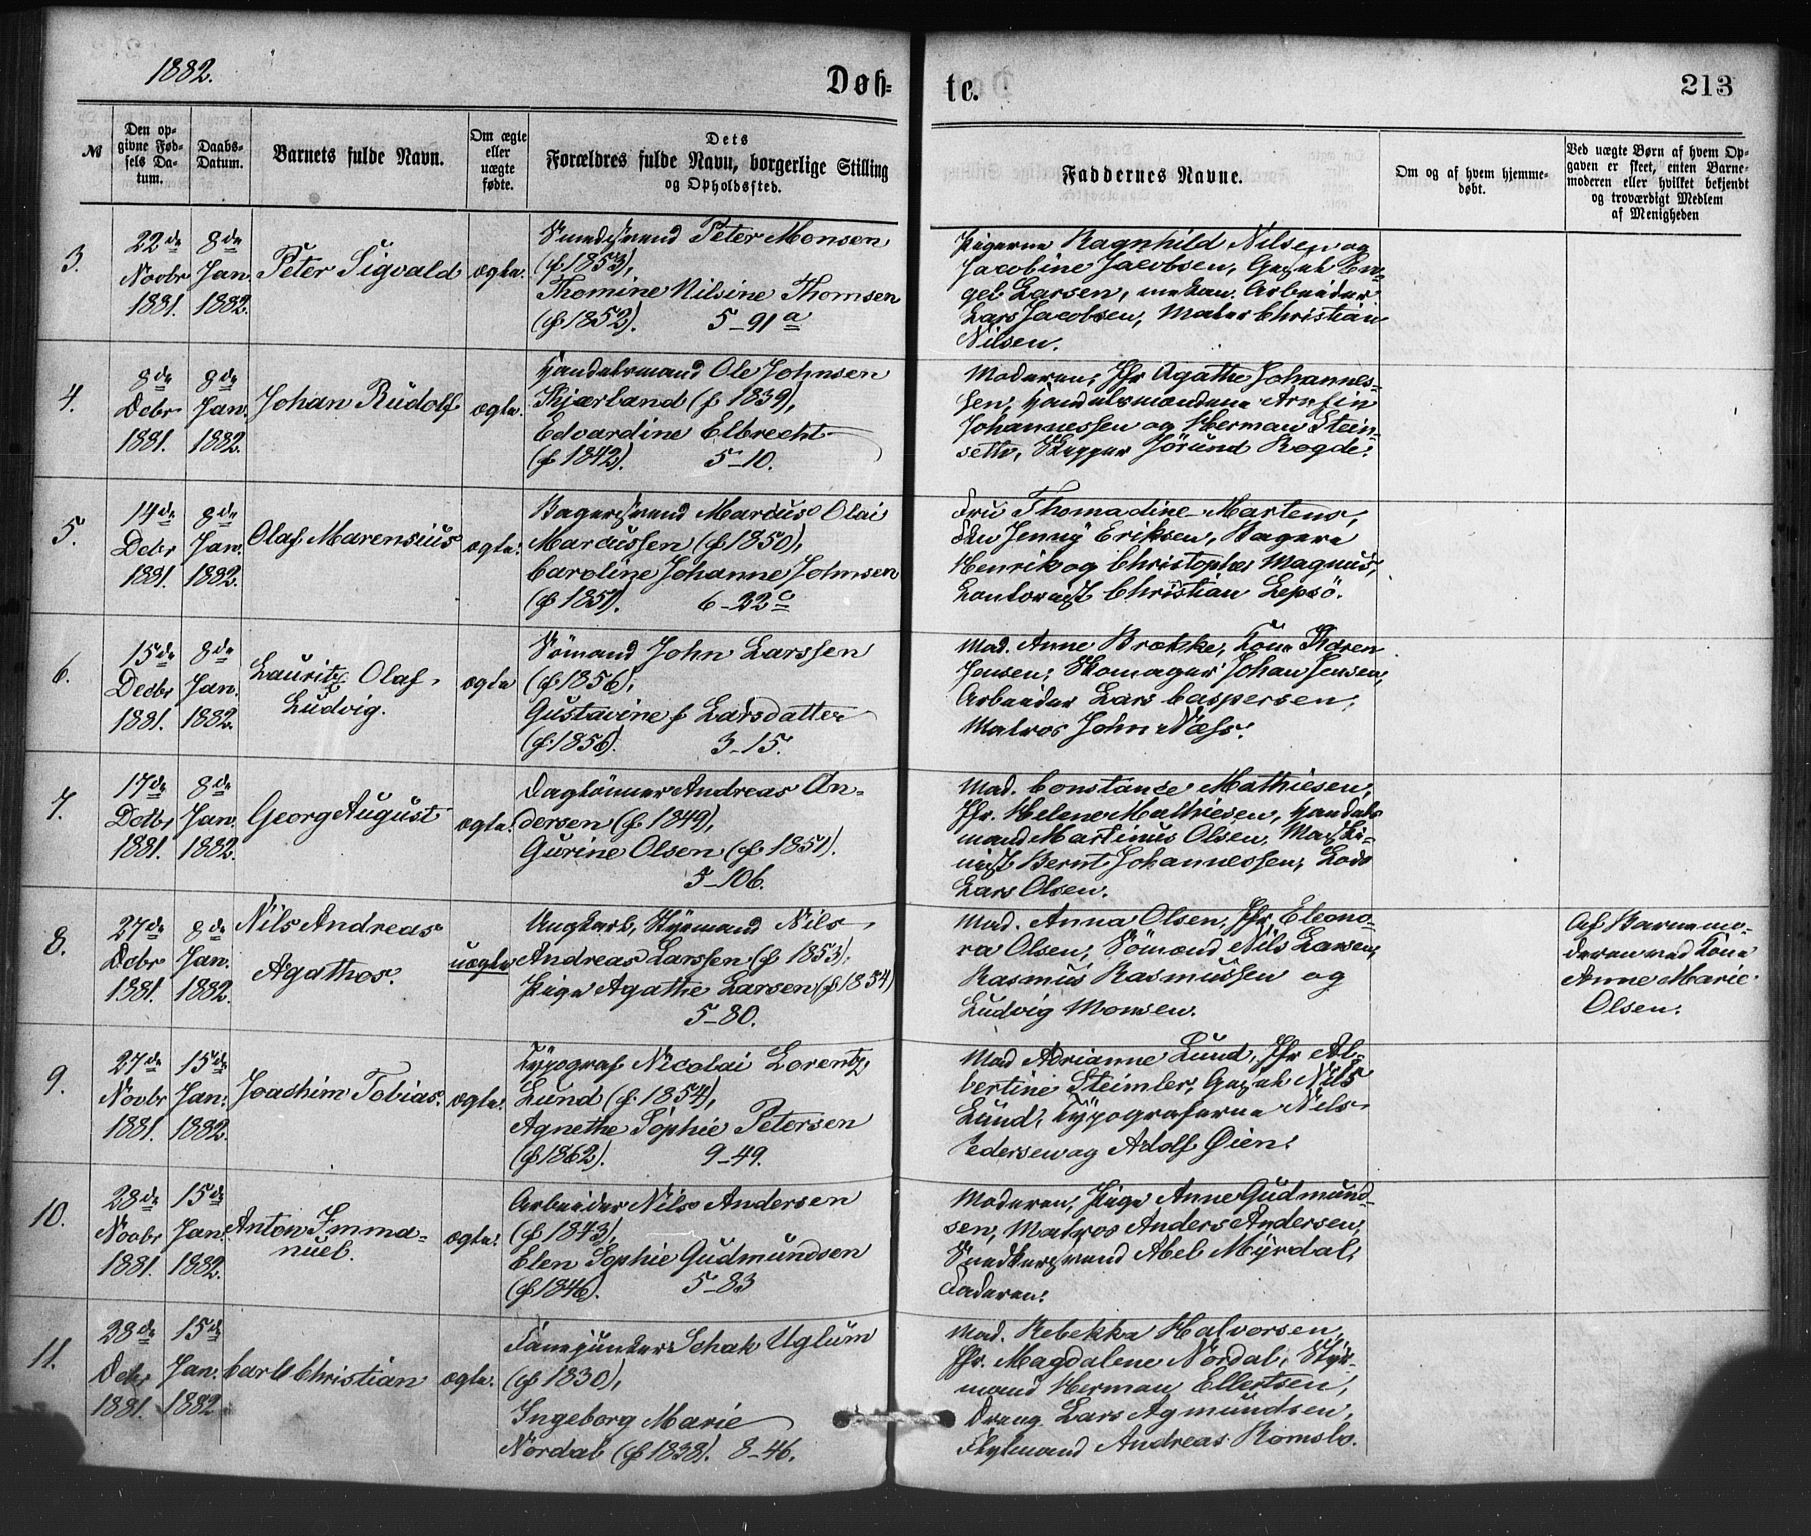 1882.
Døb=
te.
213
№
Den op-
givne Fød-
sels Da-
tum.
Daabs-
Datum.
Barnets fulde Navn.
Om ægte
eller
uægte
fødte.
Dets
Forældres fulde Navn, borgerlige Stilling
og Opholdssted.
Faddernes Navne.
Om og af hvem hjemme-
døbt.
Ved uægte Børn af hvem Op-
gaven er skeet, enten Barne-
moderen eller hvilket bekjendt
og troværdigt Medlem
af Menigheden
3.
22de
Novbr
1881.
8de
Jan.
1882.
Peter Sigvald
ægte.
Peter Monsen
(f 1853),
Thomine Nilsine Thomsen
(f 1852). 5-91a
Pigerne Ragnhild Nilsen og
Jacobine Jacobsen, Gasel En-
gel Larsen, mekan. Arbeider
Lars Jacobsen, Maler Christian
Nilsen.
4.
8de
Debr
1881.
8de
Jan.
1882.
Johan Rudolf
ægte.
Handelsmand Ole Johnsen
Kjærland (f 1839),
Edvardine Elbrecht
(f 1842). 5-10.
Moderen, Jfr Agathe Johannes-
sen, Handelsmændene Arnfin
Johannessen og Herman Stein-
seth, Skipper Jörund Rogde.
5.
14de
Debr
1881.
8de
Jan.
1882.
Olaf Marensius
ægte.
Bagersvend Marcus Olai
Marcussen (f 1850),
Caroline Johanne Johnsen
(f 1857). 6-22c
Fru Thomadine Martens,
Frk Jenny Eriksen, Bagere
Henrik og Christopher Magnus,
Kontorist Christian Lepsö.
6.
15de
Decbr
1881.
8de
Jan.
1882.
Lauritz Olaf
Ludvig.
ægte
Sömand John Larssen
(f 1856),
Gustavine f Larsdatter
(f. 1856). 3-15.
Mad. Anne Brække, Kone Thoren
Jensen, Skomager Johan Jensen,
Arbeider Lars Caspersen,
Matros John Næss.
7.
17de
Debr
1881.
8de
Jan.
1882.
Georg August
ægte.
Daglönner Andreas An-
dersen (f 1849),
Gurine Olsen (f 1851).
5-106.
Mad. Constance Mathiesen,
Jfr. Helene Mathiesen, Handels
mand Martinus Olsen, Maski-
nist Bernt Johannessen, Lods
Lars Olsen.
8.
27de
Debr
1881.
8de
Jan.
1882.
Nils Andreas
Agathos.
uægte
Ungkarl, Styrmand Nils
Andreas Larssen (f 1853),
Pige Agathe Larsen (f 1854)
5-80.
Mad. Anna Olsen, Jfr Eleono-
ra Olsen, Sömand Nils Larsen,
Rasmus Rasmussen og
Ludvig Monsen.
Af Barnemo-
deren ved Kone
Anne Marie
Olsen.
9.
27de
Novbr
1881.
15de
Jan.
1882.
Joachim Tobias.
ægte.
Typograf Nicolai Lorentz
Lund (f. 1854),
Agnethe Sophie Petersen
(f 1862). 9-49.
Mad Adrianne Lund, Jfr Al-
bertine Steimler, Gasel Nils
Lund, Typograferne Nils
Pedersen og Adolf Øien.
10.
28de
Novbr
1881.
15de
Jan.
1882.
Anton Imma=
nuel.
ægte.
Arbeider Nils Andersen
(f 1843),
Elen Sophie Gudmundsen
(f 1846). 5-83
Moderen, Pige Anne Gudmund-
sen, Matros Anders Andersen,
Snedkersvend Abel Myrdal,
Faderen.
11.
28de
Debr
1881.
15de
Jan.
1882
Carl Christian
ægte.
Fanejunker Schak Uglum
(f 1830),
Ingeborg Marie
Nordal (f 1838). 8-46.
Mad. Rebekka Halvorsen,
Jfr. Magdalene Nordal, Styr-
mand Herman Ellertsen,
Dreng Lars Agmundsen,
Andreas Romslo.